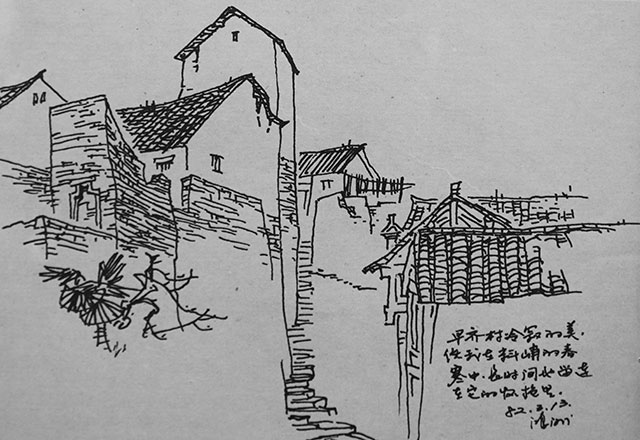 早齐村冷寂的美.
使我在料峭的春
寒中.长时间地留连
在它的怀抱里.